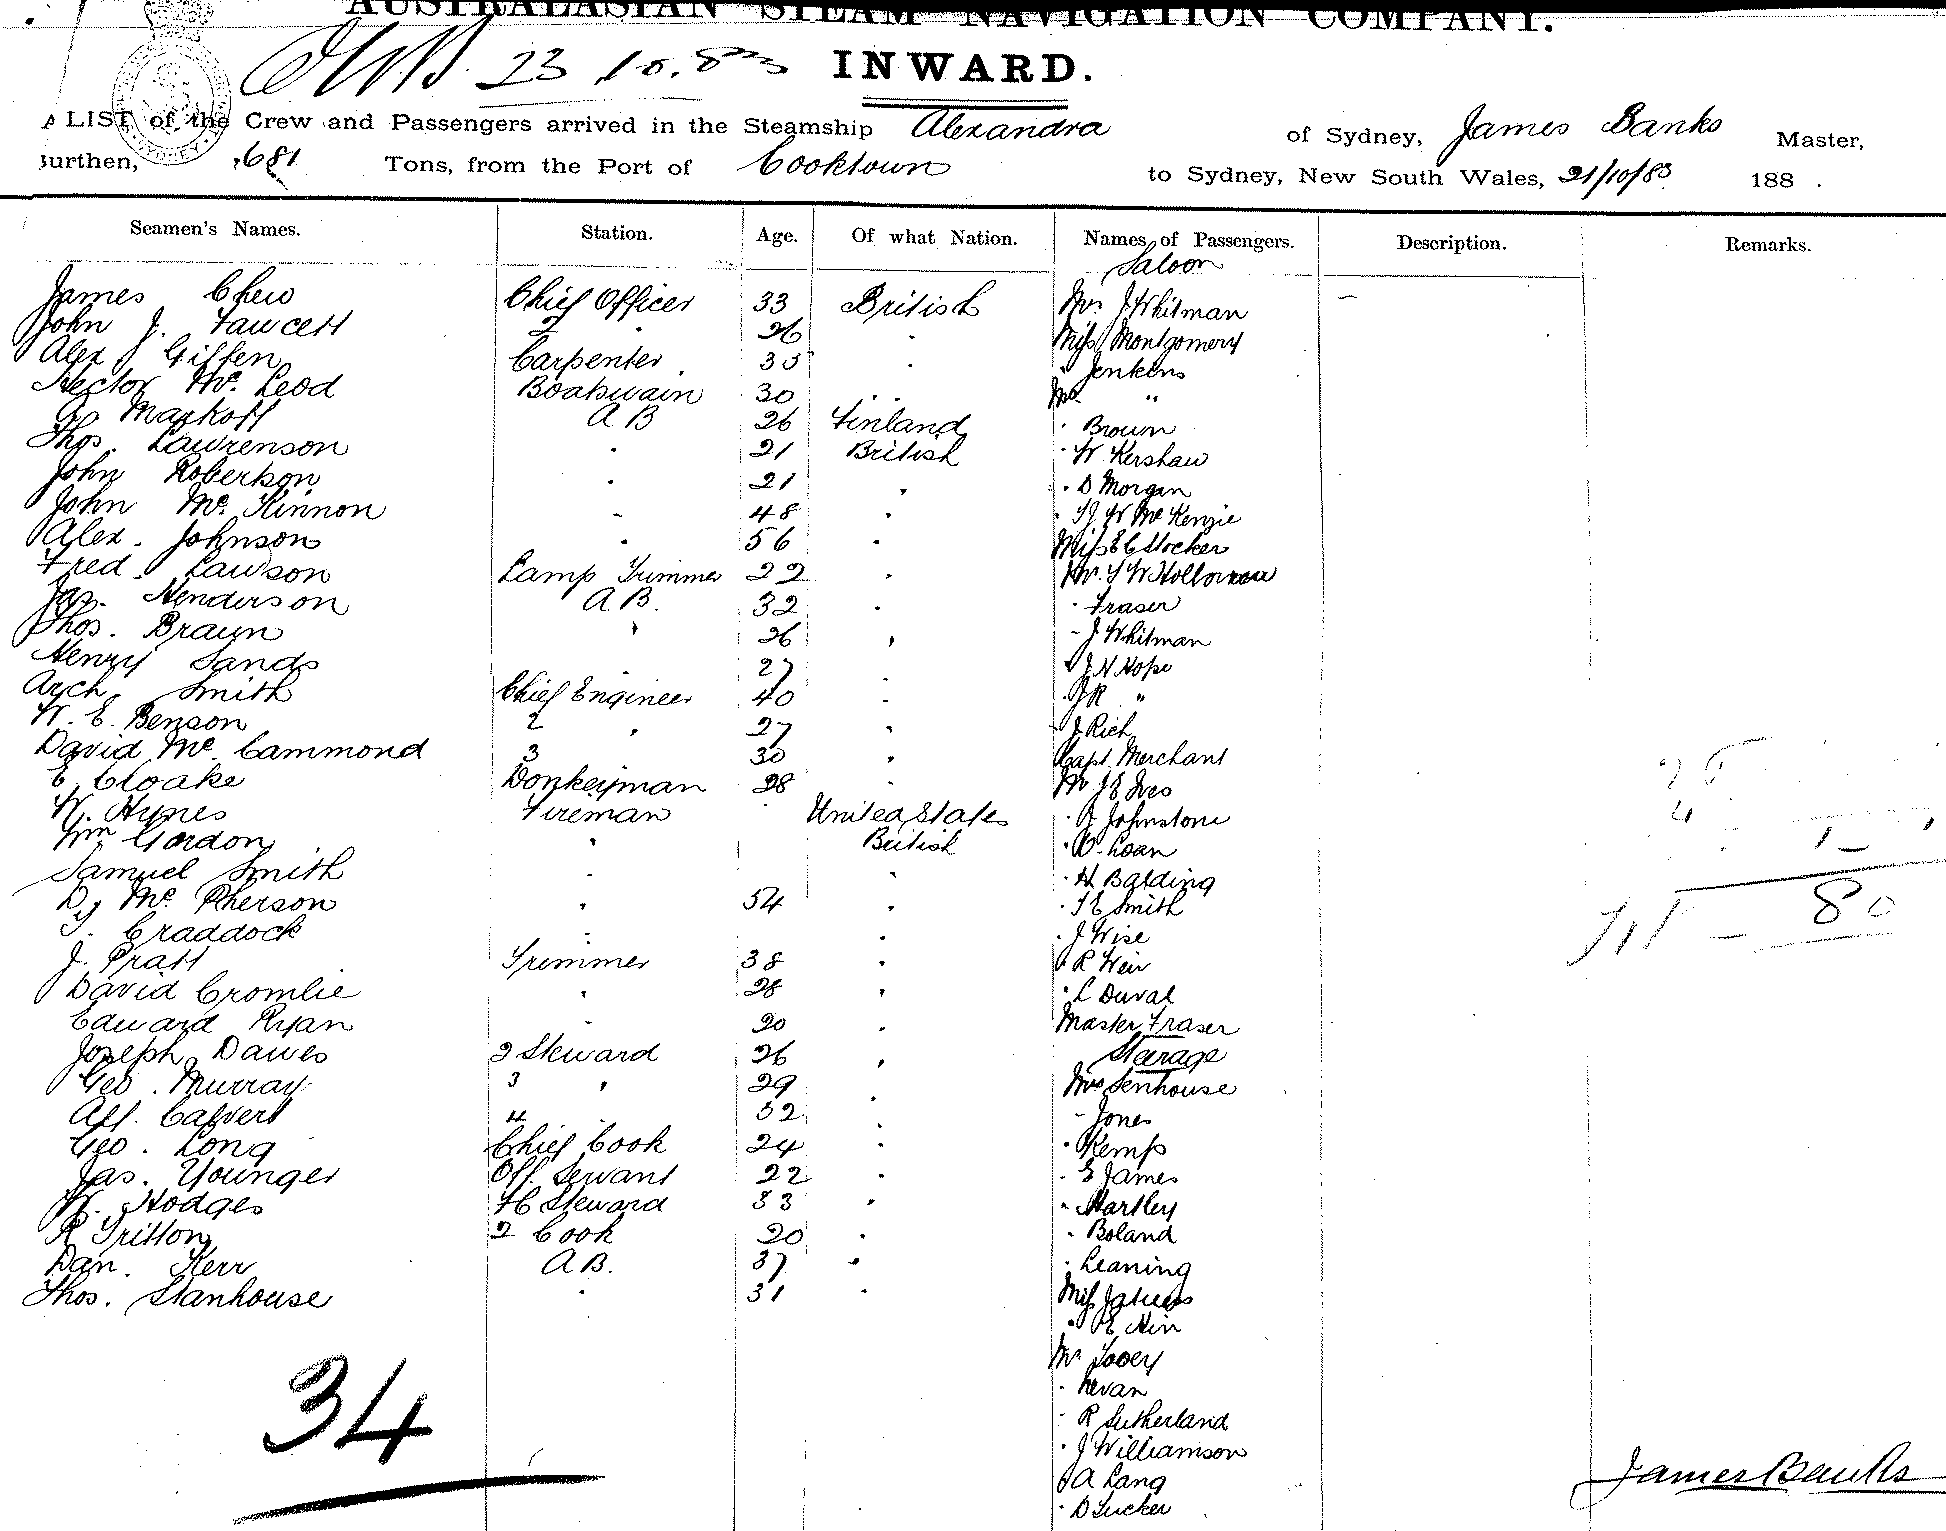 AUSTRALASIAN STEAM NAVIGATION COMPANY.
23.10.83 INWARD.
A LIST of the Crew and Passengers arrived in the Steamship Alexandra of Sydney, James Banks Master,
Burthen, 681 Tons, from the Port of Cooktown to Sydney, New South Wales, 21/10/83 188 .
Seamen's Names. Station. Age. Of what Nation. Names of Passengers. Description. Remarks.
Saloon
James Chew Chief Officer 33 British Mrs J. Whitman —
John J. Fawcett 2 " 26 " Miss Montgomery
Alex J Giffen Carpenter 35 " " Jenkens
Hector Mc. Leod Boatswain 30 " Mr "
Markoff A B 26 Finland " Brown
Thos. Lawrenson " 21 British " W Kershaw
John Robertson " 21 " " D Morgan
John Mc. Kinnon " 48 " " W Mc Kenzie
Alex. Johnson " 56 " Miss E C Stocker
Fred. Lawson Lamp Trimmer 22 " Mr.
Jas. Henderson A.B. 32 " " Fraser
Thos. Braun " 26 " " J Whitman
Henry Sands " 27 " " J H Hope
Arch. Smith Chief Engineer 40 " " J R "
W. E. Benson 2 " 27 " " J Rich
David Mc. Cammond 3 30 " Capt Merchant
E. Cloake Donkeyman 28 " Mr J E Ives
W. Hynes Fireman United States " A Johnstone
Wm Gordon " British " D. Loan
Samuel Smith " " " H Balding
D Mc. Pherson " 54 " " T E Smith
J. Craddock " " " J Wise
J. Pratt Trimmer 38 " " R Weir
David Cromlie " 28 " " L Duval
Edward Ryan " 20 " Master Fraser
Joseph Dawes 2 Steward 26 " Starage
Geo. Murray 3 " 29 " Mrs Senhouse
Alf. Calvert 4 " 32 " " Jones
Geo. Long Chief Cook 24 " " Kemp
Jas. Younger Off. Servant 22 " " E James
W. Hodges FC Steward 33 " " Hartley
R Tritton 2 Cook 20 " " Boland
Dan. Kerr A B. 37 " " Leaning
Thos. Stanhouse " 31 " Miss
" E
Mr Tooey
" Levan
" R Sutherland
" J Williamson
" A Lang
" D Tucker
34
80
James Banks